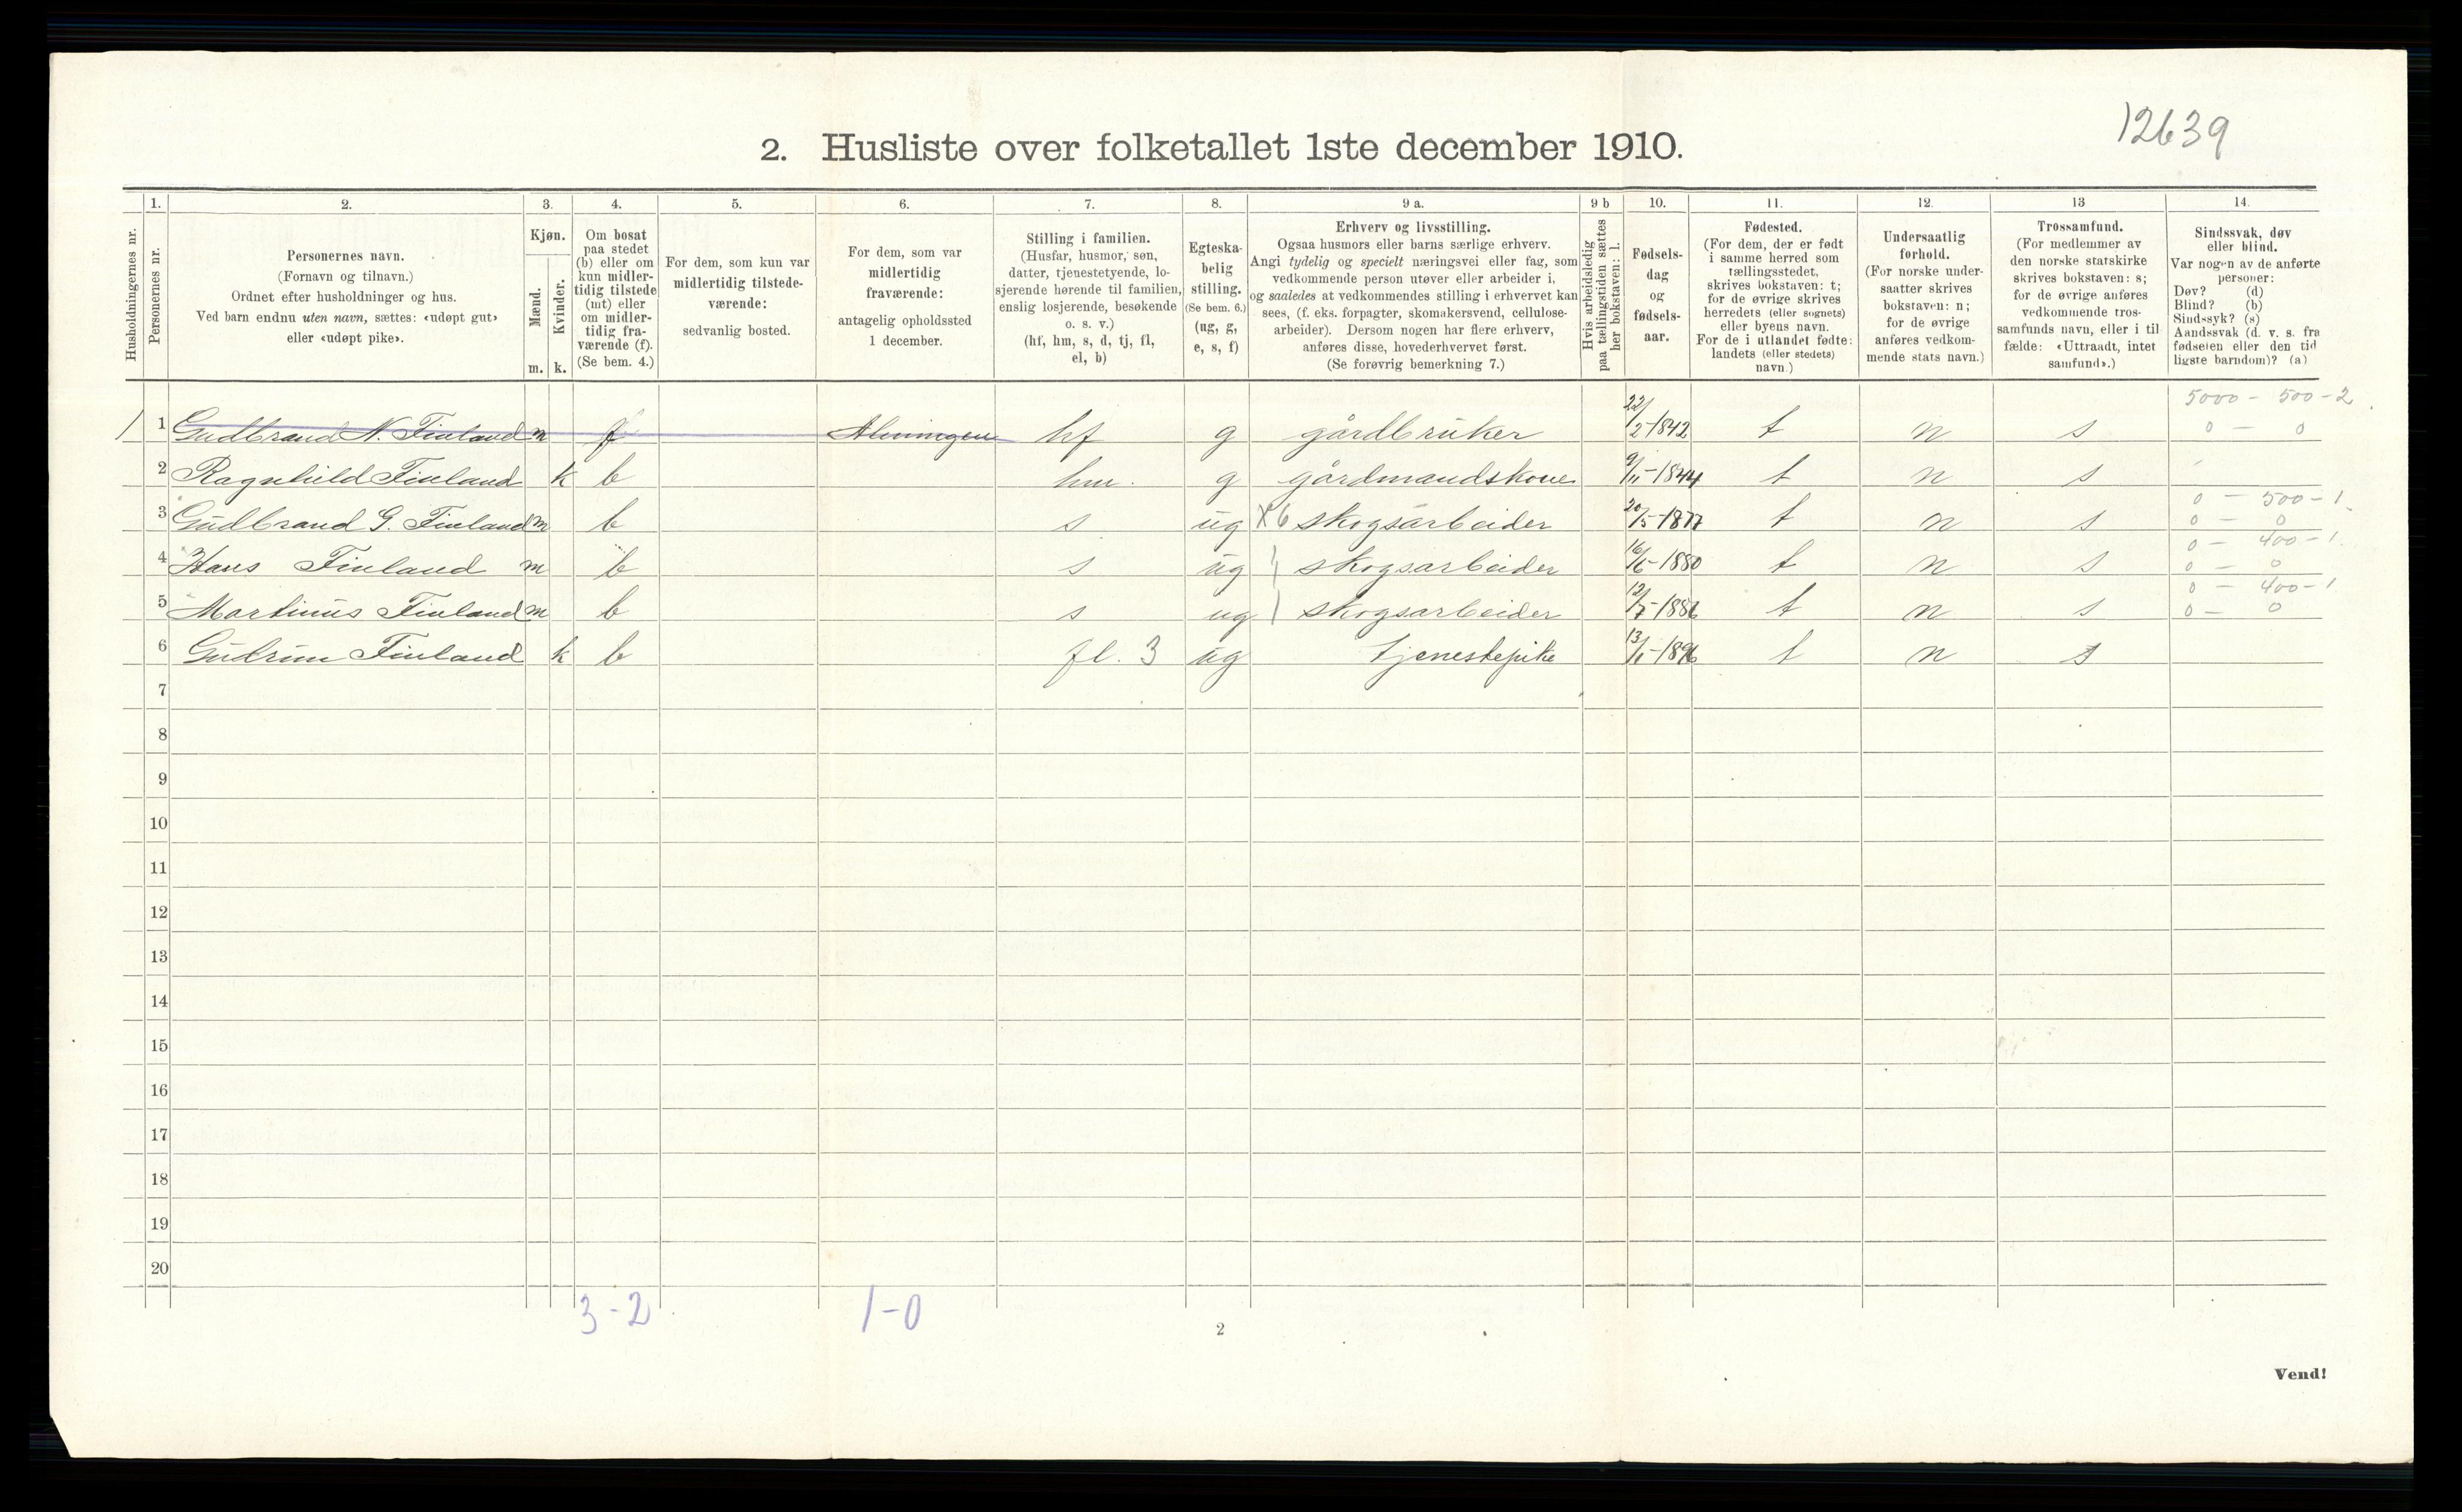 12639
2. Husliste over folketallet 1ste december 1910.
1. 2. 3. 4. 5. 6. 7. 8. 9 a. 9 b 10. 11. 12. 13 14.
Husholdningernes nr.
Personernes nr.
Personernes navn.
(Fornavn og tilnavn.)
Ordnet efter husholdninger og hus.
Ved barn endnu uten navn, sættes: «udøpt gut»
eller «udøpt pike».
Kjøn.
Mænd.
Kvinder.
m. k.
Om bosat
paa stedet
(b) eller om
kun midler-
tidig tilstede
(mt) eller
om midler-
tidig fra-
værende (f).
(Se bem. 4.)
For dem, som kun var
midlertidig tilstede-
værende:
sedvanlig bosted.
For dem, som var
midlertidig
fraværende:
antagelig opholdssted
1 december.
Stilling i familien.
(Husfar, husmor, søn,
datter, tjenestetyende, lo-
sjerende hørende til familien,
enslig losjerende, besøkende
o. s. v.)
(hf, hm, s, d, tj, fl,
el, b)
Egteska-
belig
stilling.
(Se bem. 6.)
(ug, g,
e, s, f)
Erhverv og livsstilling.
Ogsaa husmors eller barns særlige erhverv.
Angi tydelig og specielt næringsvei eller fag, som
vedkommende person utøver eller arbeider i,
og saaledes at vedkommendes stilling i erhvervet kan
sees, (f. eks. forpagter, skomakersvend, cellulose-
arbeider). Dersom nogen har flere erhverv,
anføres disse, hovederhvervet først.
(Se forøvrig bemerkning 7.)
Hvis arbeidsledig
paa tællingstiden sættes
her bokstaven: l.
Fødsels-
dag
og
fødsels-
aar.
Fødested.
(For dem, der er født
i samme herred som
tællingsstedet,
skrives bokstaven: t;
for de øvrige skrives
herredets (eller sognets)
eller byens navn.
For de i utlandet fødte:
landets (eller stedets)
navn.)
Undersaatlig
forhold.
(For norske under-
saatter skrives
bokstaven: n;
for de øvrige
anføres vedkom-
mende stats navn.)
Trossamfund.
(For medlemmer av
den norske statskirke
skrives bokstaven: s;
for de øvrige anføres
vedkommende tros-
samfunds navn, eller i til-
fælde: «Uttraadt, intet
samfund».)
Sindssvak, døv
eller blind.
Var nogen av de anførte
personer:
Døv? (d)
Blind? (b)
Sindssyk? (s)
Aandssvak (d. v. s. fra
fødselen eller den tid-
ligste barndom)? (a)
5000 - 500 - 2
1 Gudbrand N. Finland m f Almingen hf g gårdbruker 22/2-1842 t n s 0 - 0
2 Ragnhild Finland k b hm. g gårdmandskone 9/11-1844 t n s
0 - 500 - 1
3 Gudbrand G. Finland m b s ug X6 skogsarbeider 20/5-1877 t n s 0 - 0
0 - 400 - 1
4 Hans Finland m b s ug skogsarbeider 16/6-1880 t n s 0 - 0
0 - 400 - 1
5 Martinus Finland m b s ug skogsarbeider 12/7-1886 t n s 0 - 0
6 Gudrun Finland k b fl. 3 ug tjenestepike 13/1-1896 t n s
7
8
9
10
11
12
13
14
15
16
17
18
19
20
3-2 1-0
2
Vend!